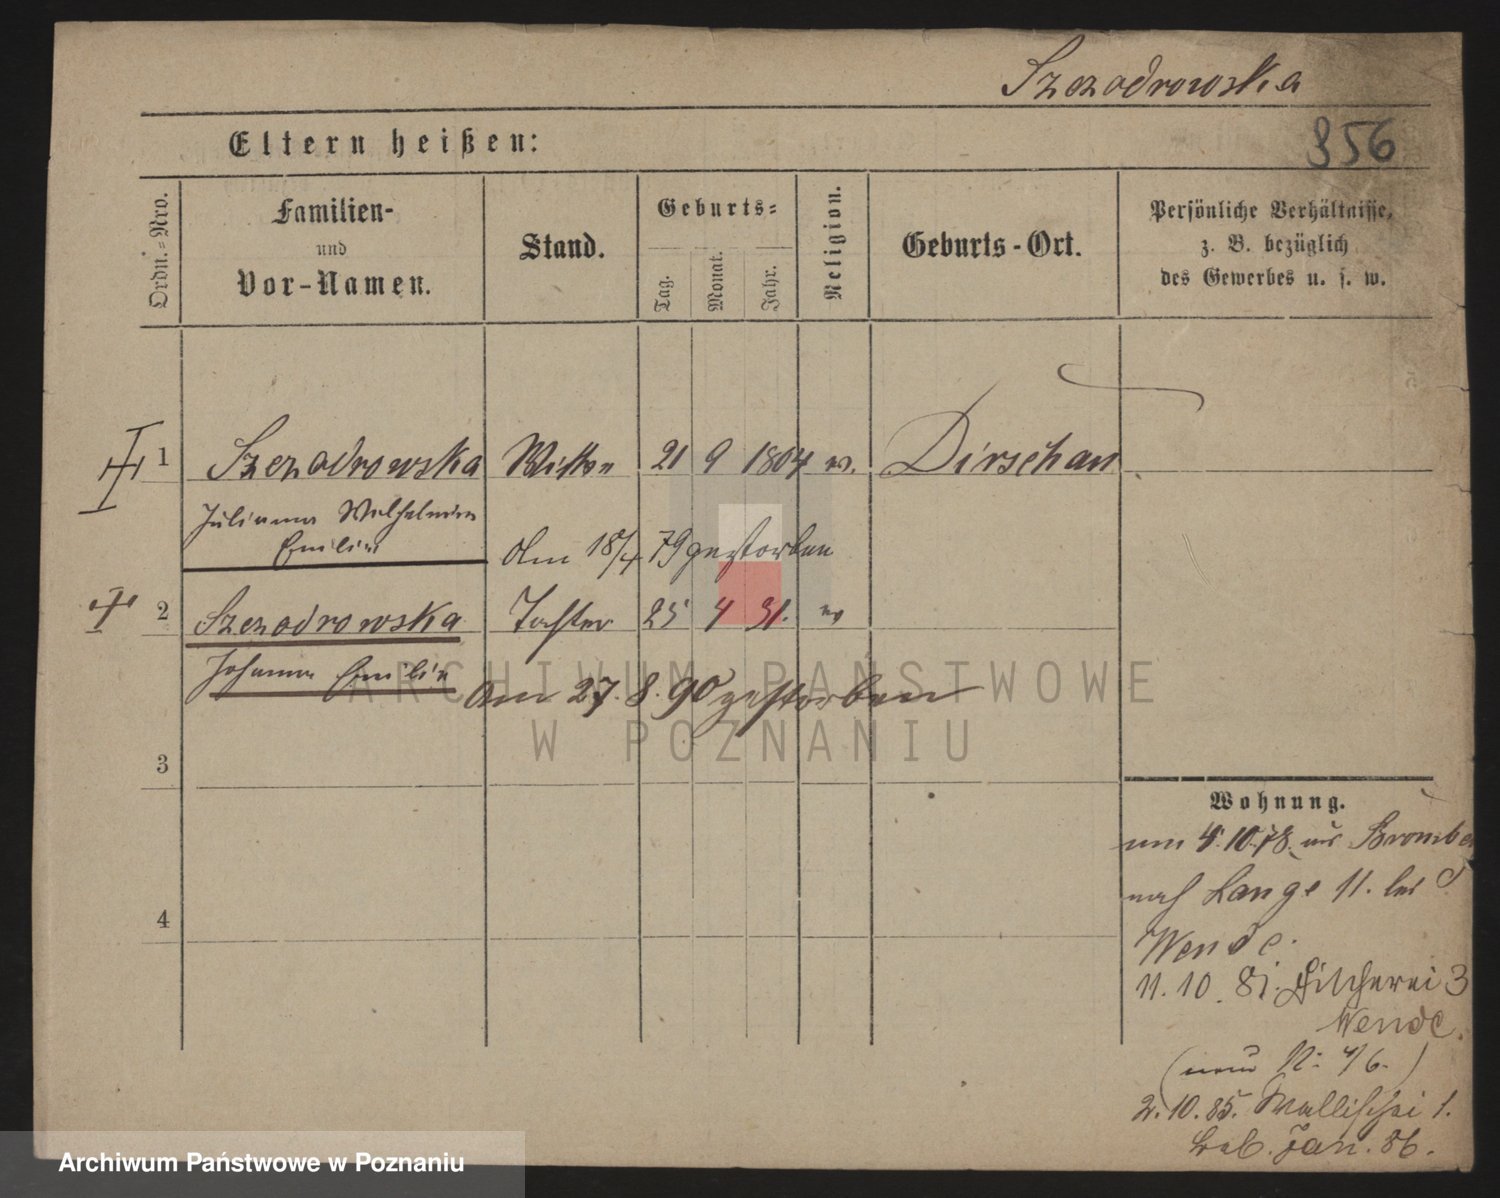 Szczodrowska
Eltern heißen:
356
Ordn.=Nro.
Familien-
und
Vor-Namen.
Stand.
Geburts=
Tag.
Monat.
Jahr.
Religion.
Geburts-Ort.
Persönliche Verhältnisse,
z. B. bezüglich
des Gewerbes u. s. w.
1 Szczodrowska Wittwe 21 9 1804 ev. Dirschau
Julianna Wilhelmine
Emilie
Am 18/4 79 gestorben
2 Szczodrowska Tochter 25 4 31. ev
Johanna Emilie
Am 27.8.90 gestorben
3
Wohnung.
4.10.78. aus Bromberg
nach Lange 11. bei
4
Wende.
11.10.81. Fischerei 3
Wende.
(neu N: 4/6.)
2.10.85. Wallischei 1.
Jan. 86.
ARCHIWUM PAŃSTWOWE
W POZNANIU
Archiwum Państwowe w Poznaniu